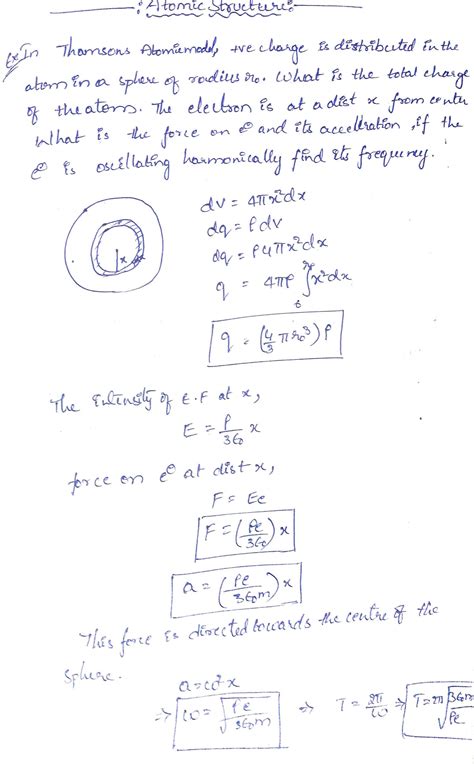 :Atomic Structure:-
Ex:In Thomsons Atomicmodel, +ve charge is distributed in the
atom in a sphere of radius r₀. What is the total charge
of the atom. The electron is at a dist x from centre
What is the force on e⊖ and its acceleration, if the
e⊖ is oscillating harmonically find its frequency.
dV = 4πx²dx
dq = ρdV
dq = ρ4πx²dx
q = 4πρ ∫x²dx
x
q = (4/3 πr₀³)ρ
The Intensity of E.F at x,
E = ρ/3ε₀ x
force on e⊖ at dist x,
F = Ee
F = (ρe/3ε₀)x
a = (ρe/3ε₀m)x
This force is directed towards the centre of the
sphere.
a=ω²x
⇒ ω = √ρe/3ε₀m ⇒ T = 2π/ω ⇒ T=2π√3ε₀m/ρe